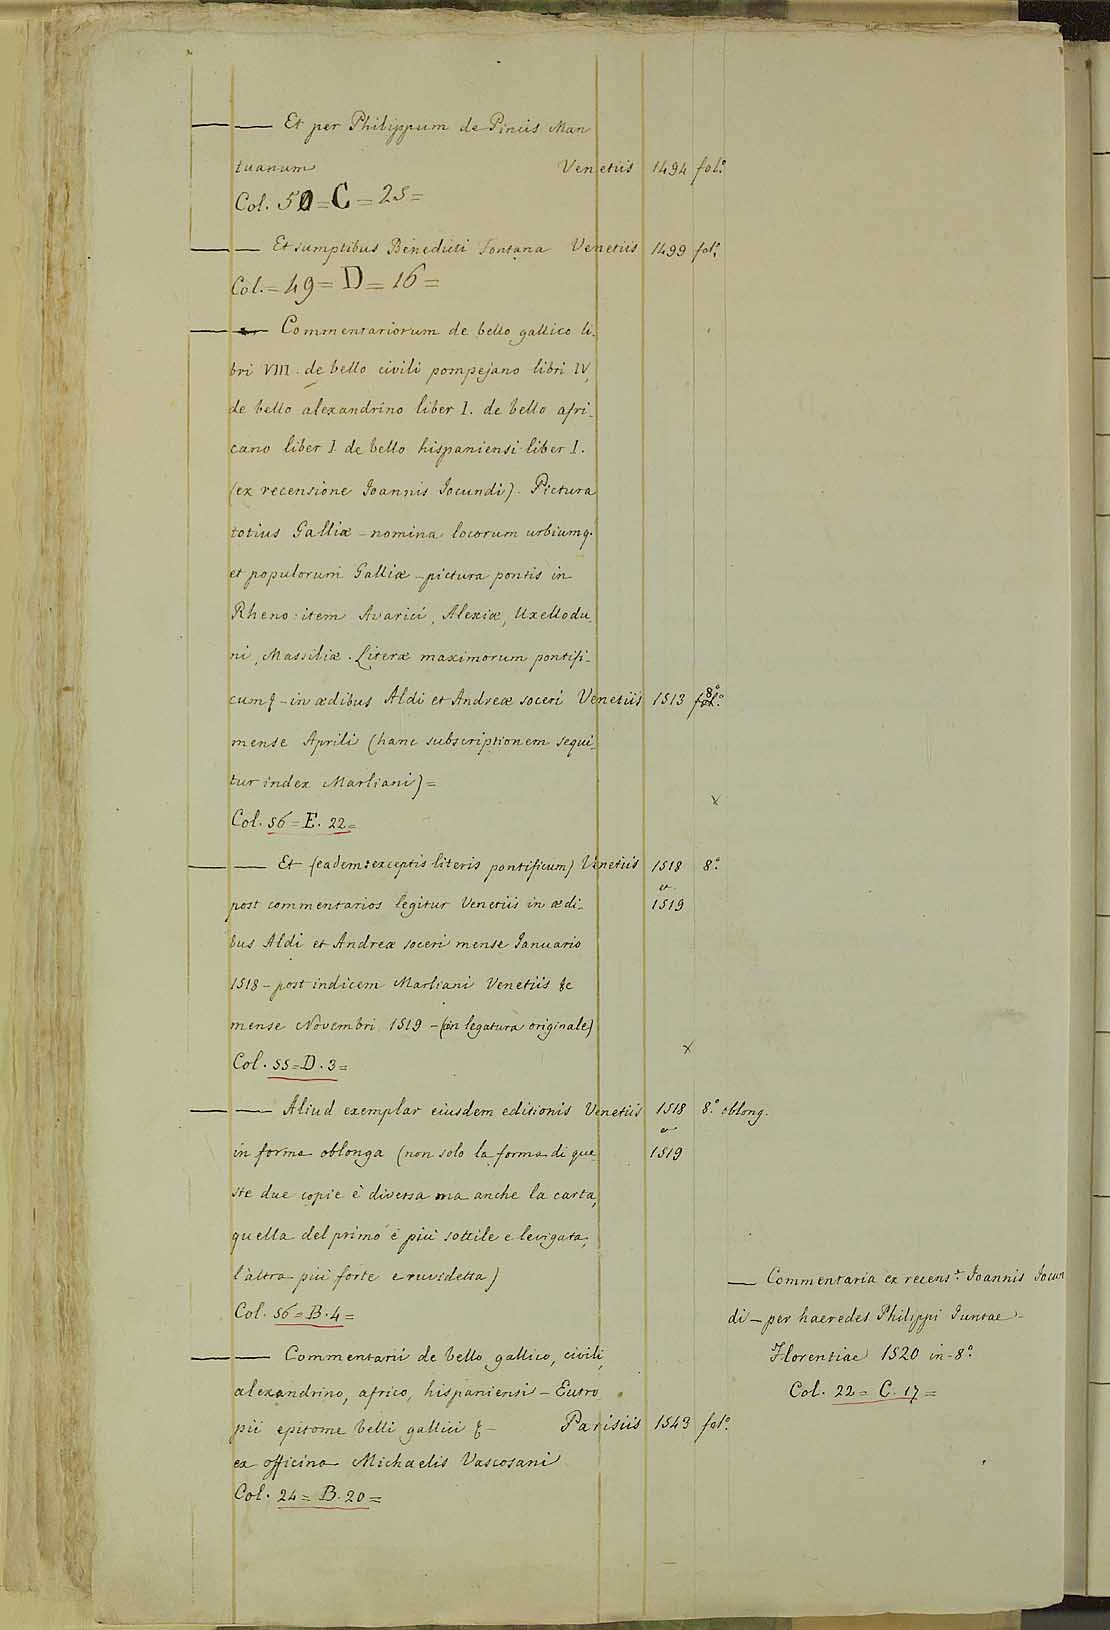 — — Et per Philippum de Pincis Man
tuanum Venetiis 1494 fol.º
Col. 50 = C = 25 =
— — Et sumptibus Benedicti Fontana Venetiis 1499 fol.º
Col. = 49 = D = 16 =
— — Commentariorum de bello gallico li-
bri VIII. de bello civili pompejano libri IV,
de bello alexandrino liber I. de bello afri-
cano liber I. de bello hispaniensi liber I.
(ex recensione Joannis Jocundi). Pictura
totius Galliæ - nomina locorum urbiumq.
et populorum Galliæ - pictura pontis in
Rheno: item Avarici, Alexiæ, Uxellodu
ni, Massiliæ. Literæ maximorum pontifi-
cum & - in ædibus Aldi et Andreæ soceri Venetiis 1513 8º
mense Aprili (hanc subscriptionem sequi-
tur index Marliani) =
Col. 56 = E. 22 =
x
— — Et (eadem: exceptis literis pontificum) Venetiis 1518 8.º
et
post commentarios legitur Venetiis in ædi- 1519
bus Aldi et Andreæ soceri mense Ianuario
1518 - post indicem Marliani Venetiis &c
mense Novembri 1519 - (in legatura originale)
x
Col. 55 = D. 3 =
— — Aliud exemplar eiusdem editionis Venetiis 1518 8.º oblong.
et
in forma oblonga (non solo la forma di que 1519
ste due copie è diversa ma anche la carta,
quella del primo è più sottile e levigata,
l'altra più forte e ruvidetta)
Col. 56 = B. 4 =
— — Commentarii de bello gallico, civili,
alexandrino, africo, hispaniensi - Eutro
pii epitome belli gallici & - Parisiis 1543 fol.º
ex officina Michaelis Vascosani
Col. 24 = B. 20 =
— Commentaria ex recens.e Joannis Jocun
di - per haeredes Philippi Juntae -
Florentiae 1520 in - 8º.
Col. 22 = C. 17 =